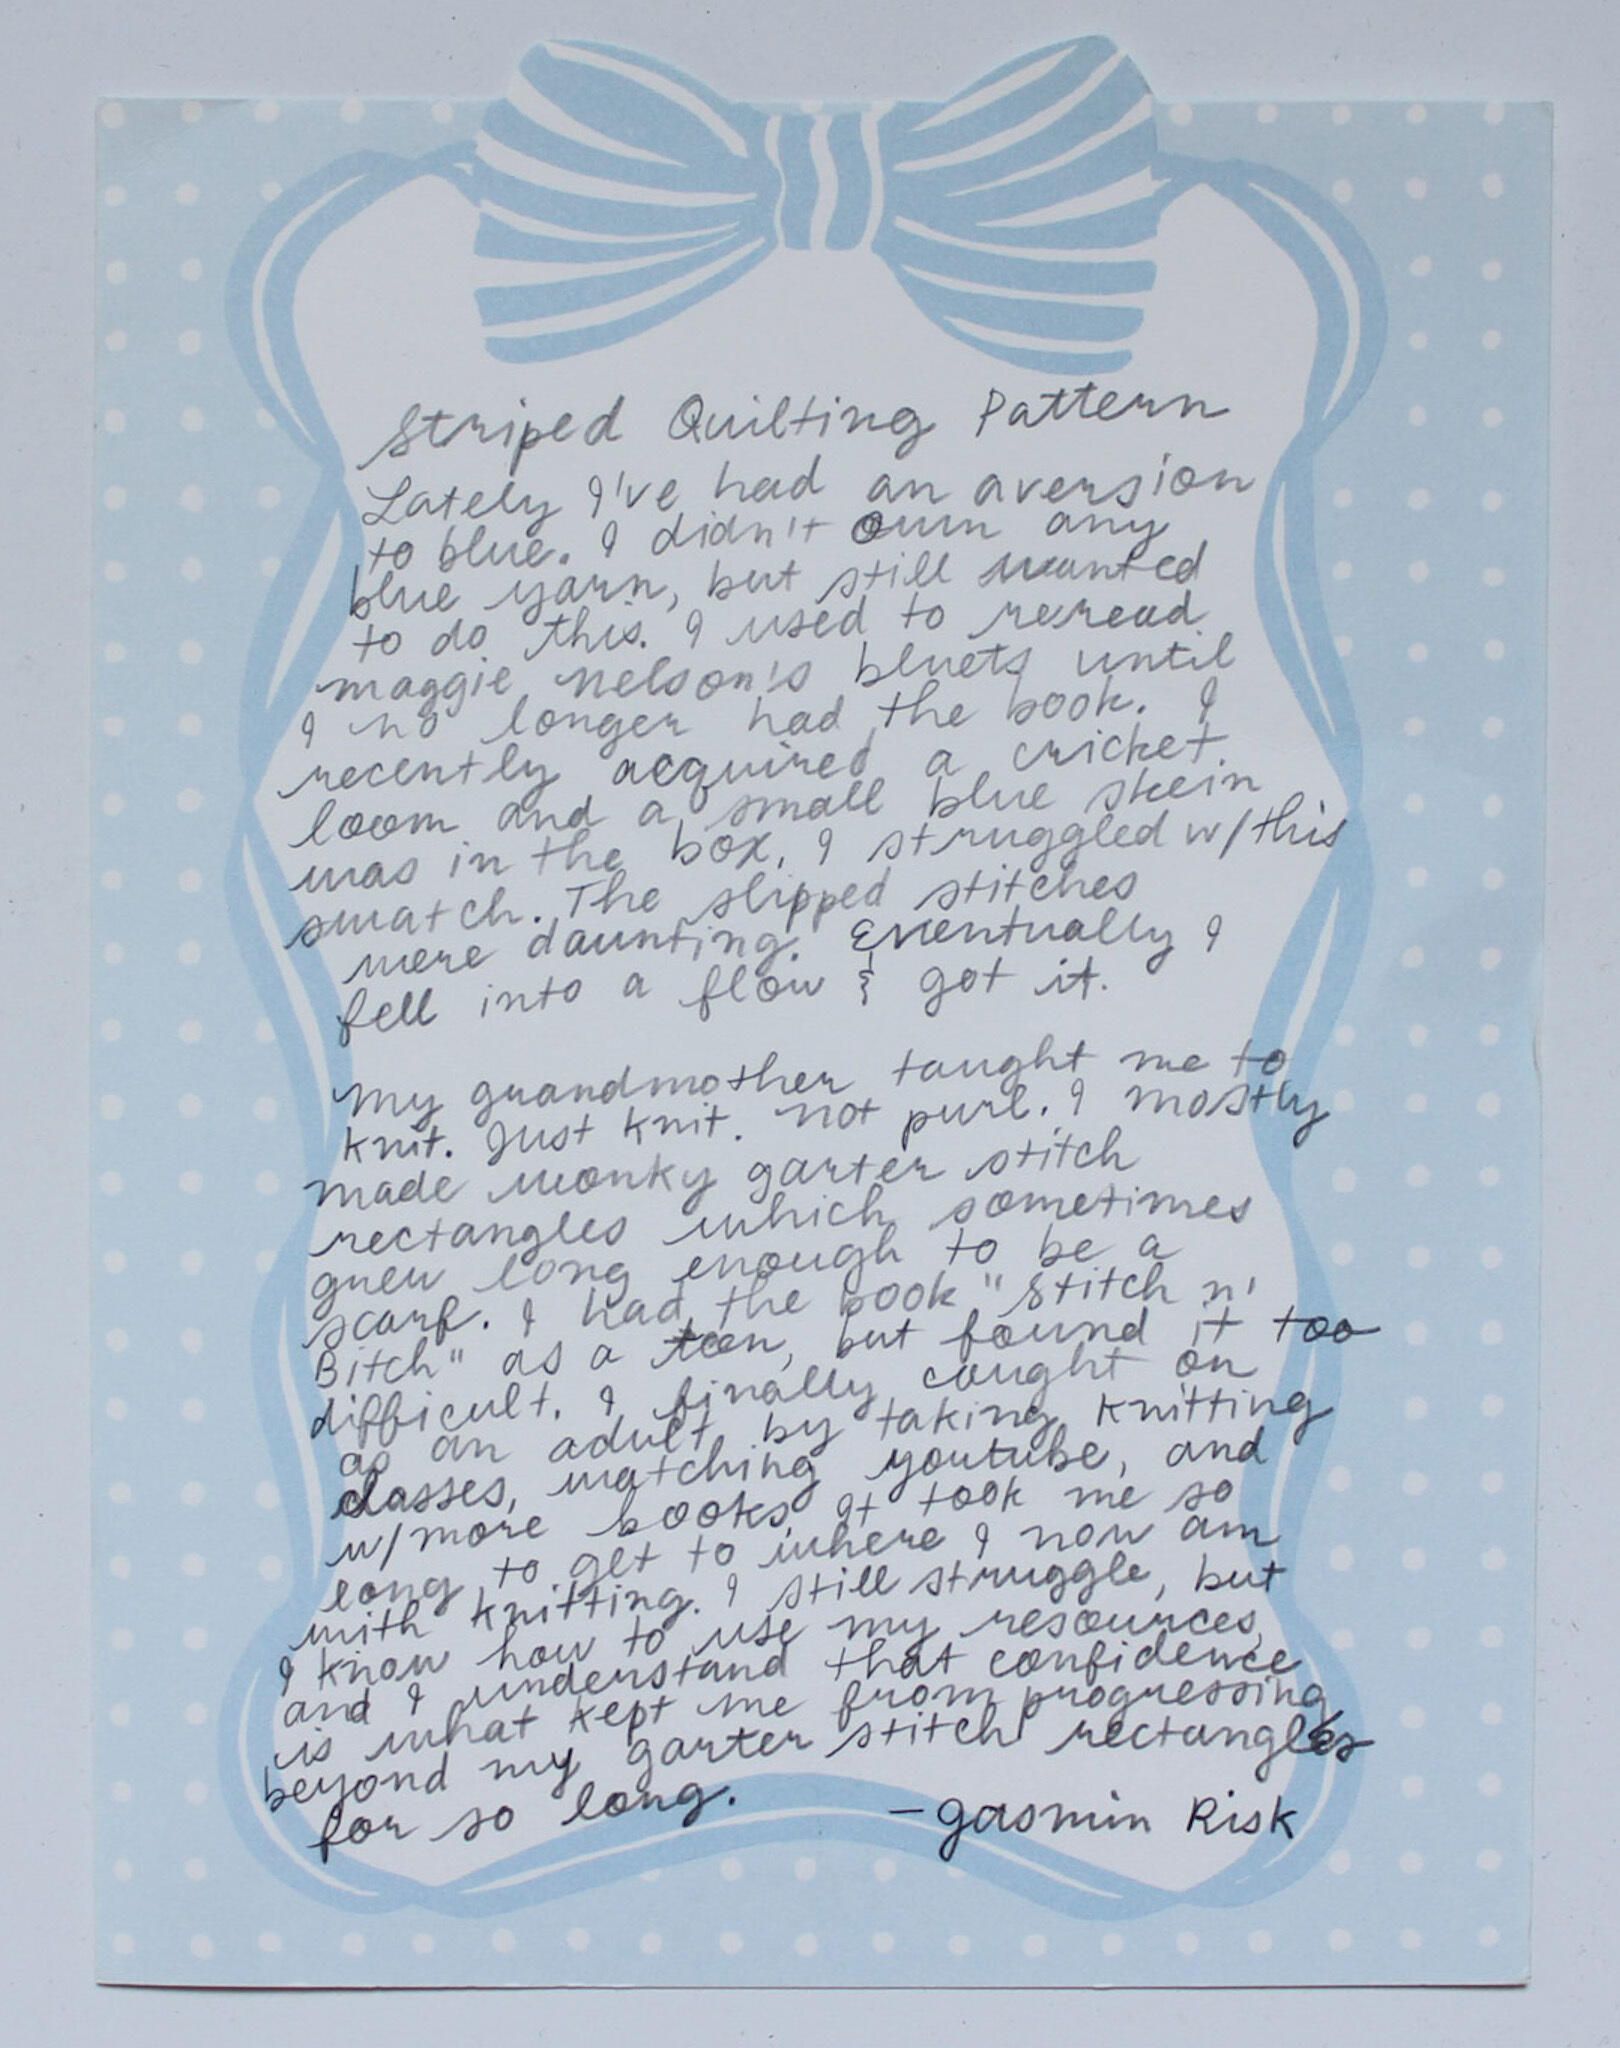 Striped Quilting Pattern
Lately I've had an aversion
to blue. I didn't own any
blue yarn, but still wanted
to do this. I used to reread
maggie nelson's bluets until
I no longer had the book. I
recently acquired a cricket
loom and a small blue skein
was in the box. I struggled w/this
swatch. The slipped stitches
were daunting. Eventually I
fell into a flow & got it.
My grandmother taught me to
knit. Just knit. Not purl. I mostly
made wonky garter stitch
rectangles which sometimes
grew long enough to be a
scarf. I had the book "Stitch n'
Bitch" as a teen, but found it too
difficult. I finally caught on
as an adult by taking knitting
classes, watching youtube, and
w/more books. It took me so
long to get to where I now am
with knitting. I still struggle, but
I know how to use my resources,
and I understand that confidence
is what kept me from progressing
beyond my garter stitch rectangles
for so long. -Jasmin Risk